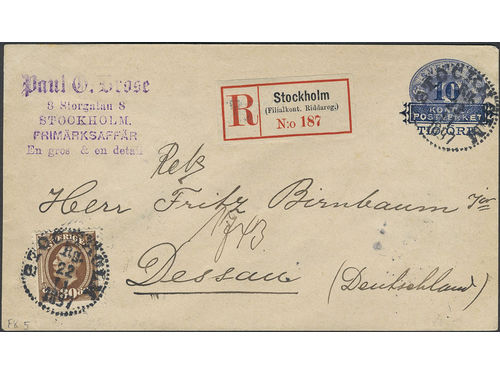 Paul G. Brose
8 Storgatan 8
STOCKHOLM.
FRIMÄRKSAFFÄR
En gros & en detail
R
Stockholm
(Filialkont. Riddareg.)
N:o 187
10
POSTVERKET
TIO ÖRE
Rek
Herr Fritz Birnbaum Jor
743
Dessau (Deutschland)
SVERIGE
30
22
11
1897
FK 5